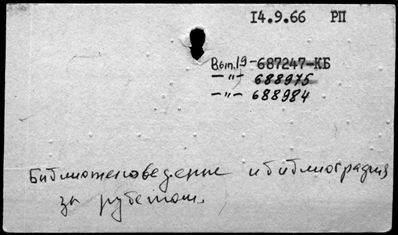 14.9.66 РП
Вып.19-687247-КБ
-"- 688975
-"- 688984
Библиотековедение и библиография
за рубежом.